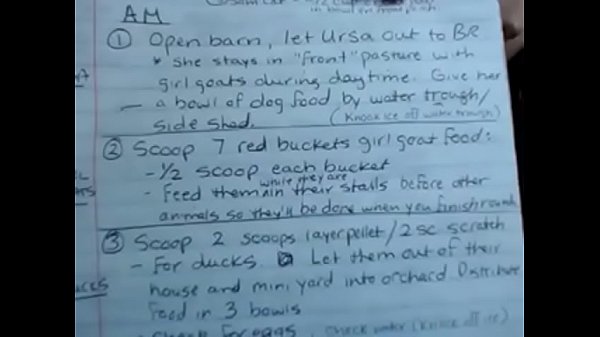 AM
① Open barn, let Ursa out to BR
* She stays in "front" pasture with
girl goats during daytime. Give her
a bowl of dog food by water trough/
side shed. (Knock ice off water trough)
② Scoop 7 red buckets girl goat food:
- 1/2 scoop each bucket
- Feed them while they are in their stalls before other
animals so they'll be done when you finish round
③ Scoop 2 scoops layer pellet/2 sc scratch
- For ducks. Let them out of their
house and mini yard into orchard. Distribute
food in 3 bowls
- Check for eggs, check water (knock off ice)